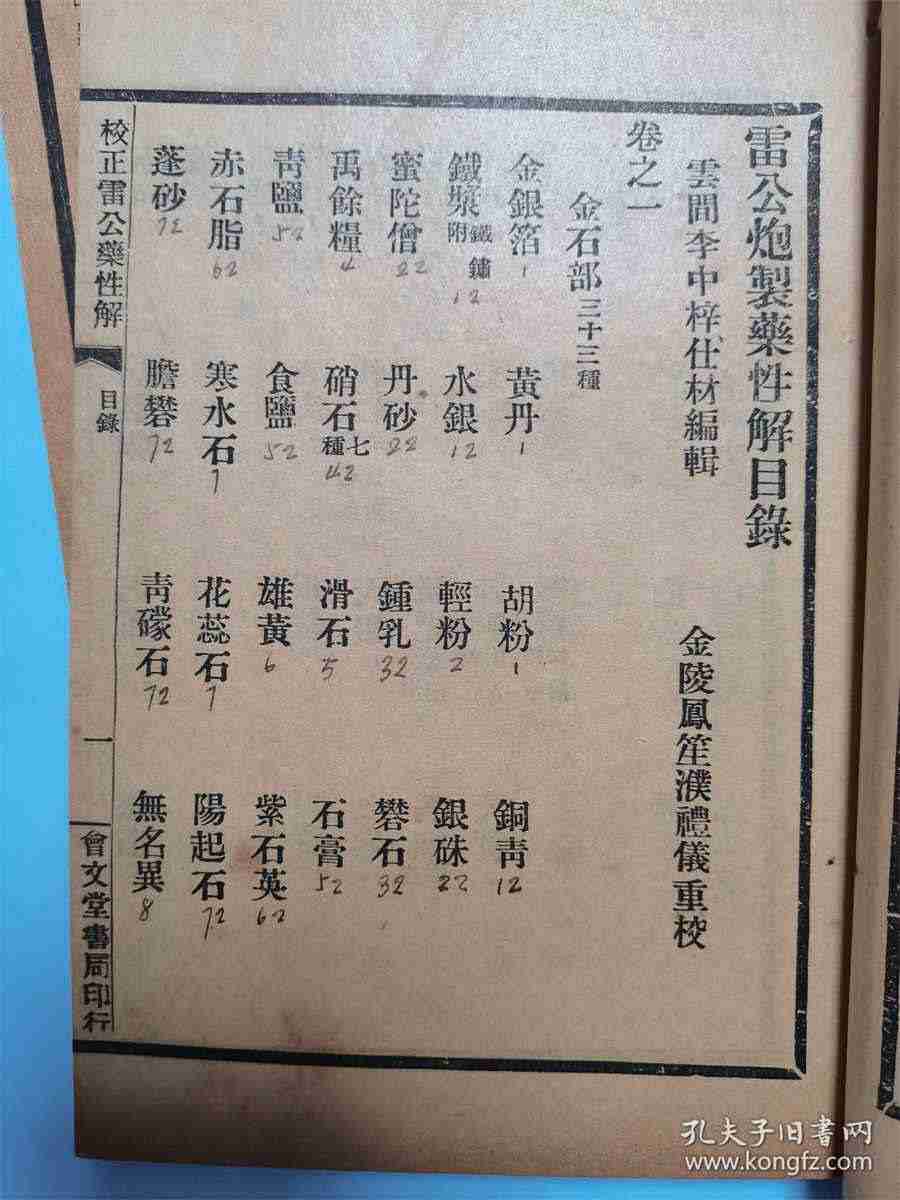 雷公炮製藥性解目錄
雲間李中梓仕材編輯 金陵鳳笙濮禮儀重校
卷之一
金石部 三十三種
金銀箔 1 黃丹 1 胡粉 1 銅青 12
鐵漿 附鐵鏽 12 水銀 12 輕粉 2 銀硃 22
蜜陀僧 22 丹砂 22 鍾乳 32 礬石 32
禹餘糧 4 硝石 七種 42 滑石 5 石膏 52
青鹽 52 食鹽 52 雄黃 6 紫石英 62
赤石脂 62 寒水石 7 花蕊石 7 陽起石 72
蓬砂 72 膽礬 72 青礞石 72 無名異 8
校正雷公藥性解 目錄 一 會文堂書局印行
孔夫子旧书网
www.kongfz.com